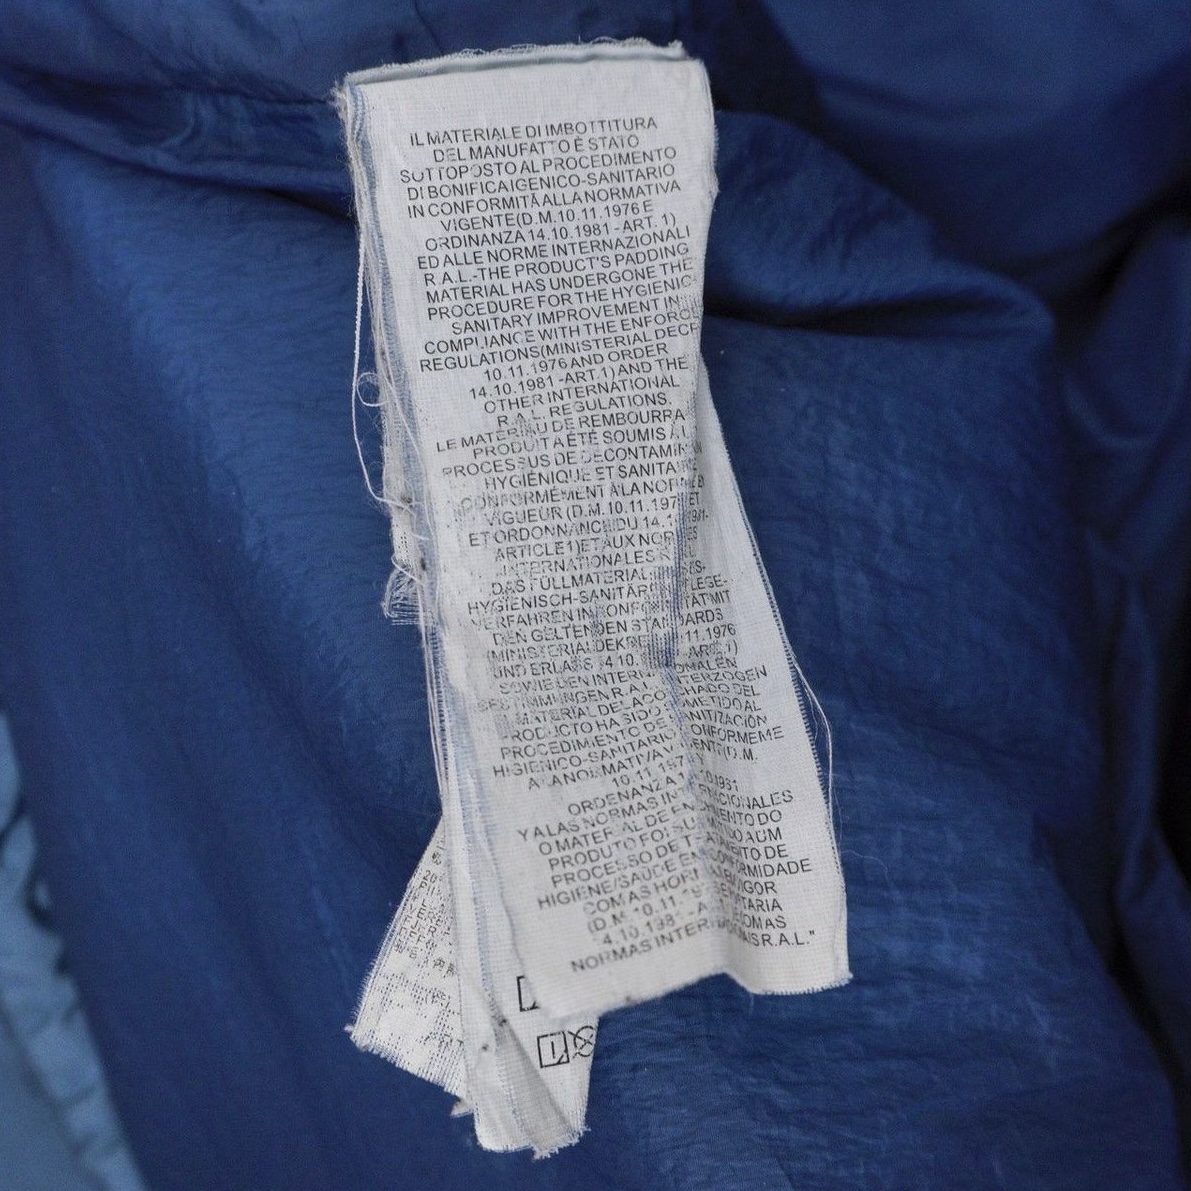 IL MATERIALE DI IMBOTTITURA
DEL MANUFATTO È STATO
SOTTOPOSTO AL PROCEDIMENTO
DI BONIFICA IGENICO-SANITARIO
IN CONFORMITÀ ALLA NORMATIVA
VIGENTE (D.M. 10.11.1976 E
ORDINANZA 14.10.1981 - ART. 1)
ED ALLE NORME INTERNAZIONALI
R.A.L.-THE PRODUCT'S PADDING
MATERIAL HAS UNDERGONE THE
PROCEDURE FOR THE HYGIENIC-
SANITARY IMPROVEMENT IN
COMPLIANCE WITH THE ENFORC
REGULATIONS (MINISTERIAL DECR
10.11.1976 AND ORDER
14.10.1981 -ART.1) AND THE
OTHER INTERNATIONAL
R.A.L. REGULATIONS.
LE MATERIAU DE REMBOURRA
PRODUIT A ÉTÉ SOUMIS À
PROCESSUS DE DECONTAMIN
HYGIÉNIQUE ET SANITA
CONFORMÉMENT À LA NOR
VIGUEUR (D.M. 10.11.197 ET
ET ORDONNANCE DU 14. 1981-
ARTICLE 1) ET AUX NOR ES
INTERNATIONALES R
DAS FÜLLMATERIAL ES-
HYGIENISCH-SANITÄR FLEGE-
VERFAHREN IN KONF ITÄT MIT
DEN GELTENDEN STANDARDS
(MINISTERIALDEKRE .11.1976
UND ERLASS 14.10. ART.1)
SOWIE DEN INTER ONALEN
BESTIMMUNGEN R.A. TERZOGEN
MATERIAL DEL ACO CHADO DEL
PRODUCTO HA SIDO METIDO AL
PROCEDIMIENTO DE ANITIZACIÓN
HIGIENICO-SANITARIO CONFORMEME
A LA NORMATIVA V ENTE (D.M.
10.11.197
ORDENANZA 1 .10.1981
Y A LAS NORMAS INT NACIONALES
O MATERIAL DE EN MENTO DO
PRODUTO FOI SU IDO A UM
PROCESSO DE T ATAMENTO DE
HIGIENE/SAÚDE EM CONFORMIDADE
COM AS NORM VIGOR
(D.M. 10.11.197 TARIA
14.10.1981 - A COM AS
NORMAS INTER IONAIS R.A.L."